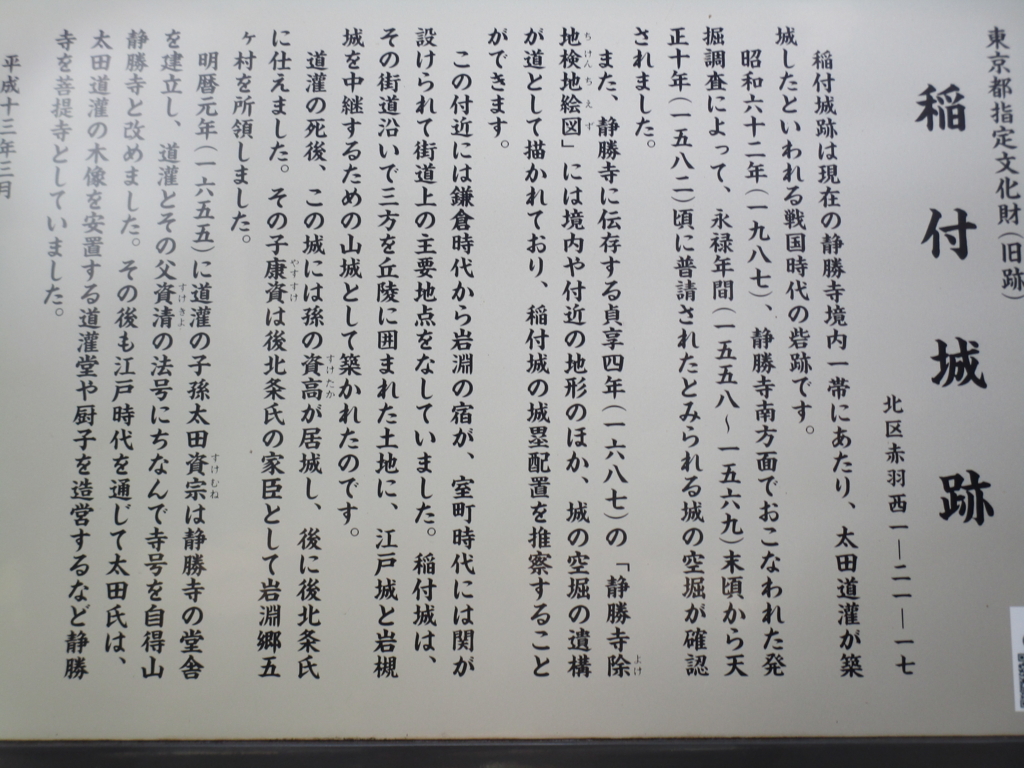 東京都指定文化財(旧跡)
稲付城跡
北区赤羽西一―二一―一七
稲付城跡は現在の静勝寺境内一帯にあたり、太田道灌が築
城したといわれる戦国時代の砦跡です。
昭和六十二年(一九八七)、静勝寺南方面でおこなわれた発
掘調査によって、永禄年間(一五五八～一五六九)末頃から天
正十年(一五八二)頃に普請されたとみられる城の空堀が確認
されました。
また、静勝寺に伝存する貞享四年(一六八七)の「静勝寺除
地検地絵図」には境内や付近の地形のほか、城の空堀の遺構
が道として描かれており、稲付城の城塁配置を推察すること
ができます。
この付近には鎌倉時代から岩淵の宿が、室町時代には関が
設けられて街道上の主要地点をなしていました。稲付城は、
その街道沿いで三方を丘陵に囲まれた土地に、江戸城と岩槻
城を中継するための山城として築かれたのです。
道灌の死後、この城には孫の資高が居城し、後に後北条氏
に仕えました。その子康資は後北条氏の家臣として岩淵郷五
ヶ村を所領しました。
明暦元年(一六五五)に道灌の子孫太田資宗は静勝寺の堂舎
を建立し、道灌とその父資清の法号にちなんで寺号を自得山
静勝寺と改めました。その後も江戸時代を通じて太田氏は、
太田道灌の木像を安置する道灌堂や厨子を造営するなど静勝
寺を菩提寺としていました。
平成十三年三月